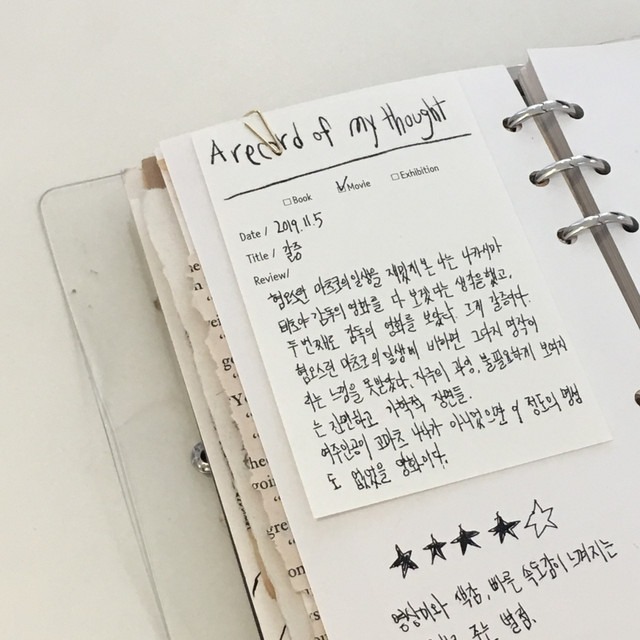 A record of my thought
□Book ☑Movie □Exhibition
Date / 2019.11.5
Title / 갈증
Review/
혐오스런 마츠코의 일생을 재밌게 본 나는 나카시마
테츠야 감독의 영화를 다 보겠다는 생각을 했고,
두번째로 감독의 영화를 보았다. 그게 갈증이다.
혐오스런 마츠코의 일생에 비하면 그다지 명작이
라는 느낌을 못받았다. 자극의 과잉, 불필요하게 보여지
는 잔인하고 가학적 장면들.
여주인공이 고마츠 나나가 아니었으면 이 정도의 명성
도 없었을 영화이다.
영상미와 색감, 빠른 속도감이 느껴지는
주는 별점.
he
"
ge
"
"Y
"
the
goin
"
gre
"
on